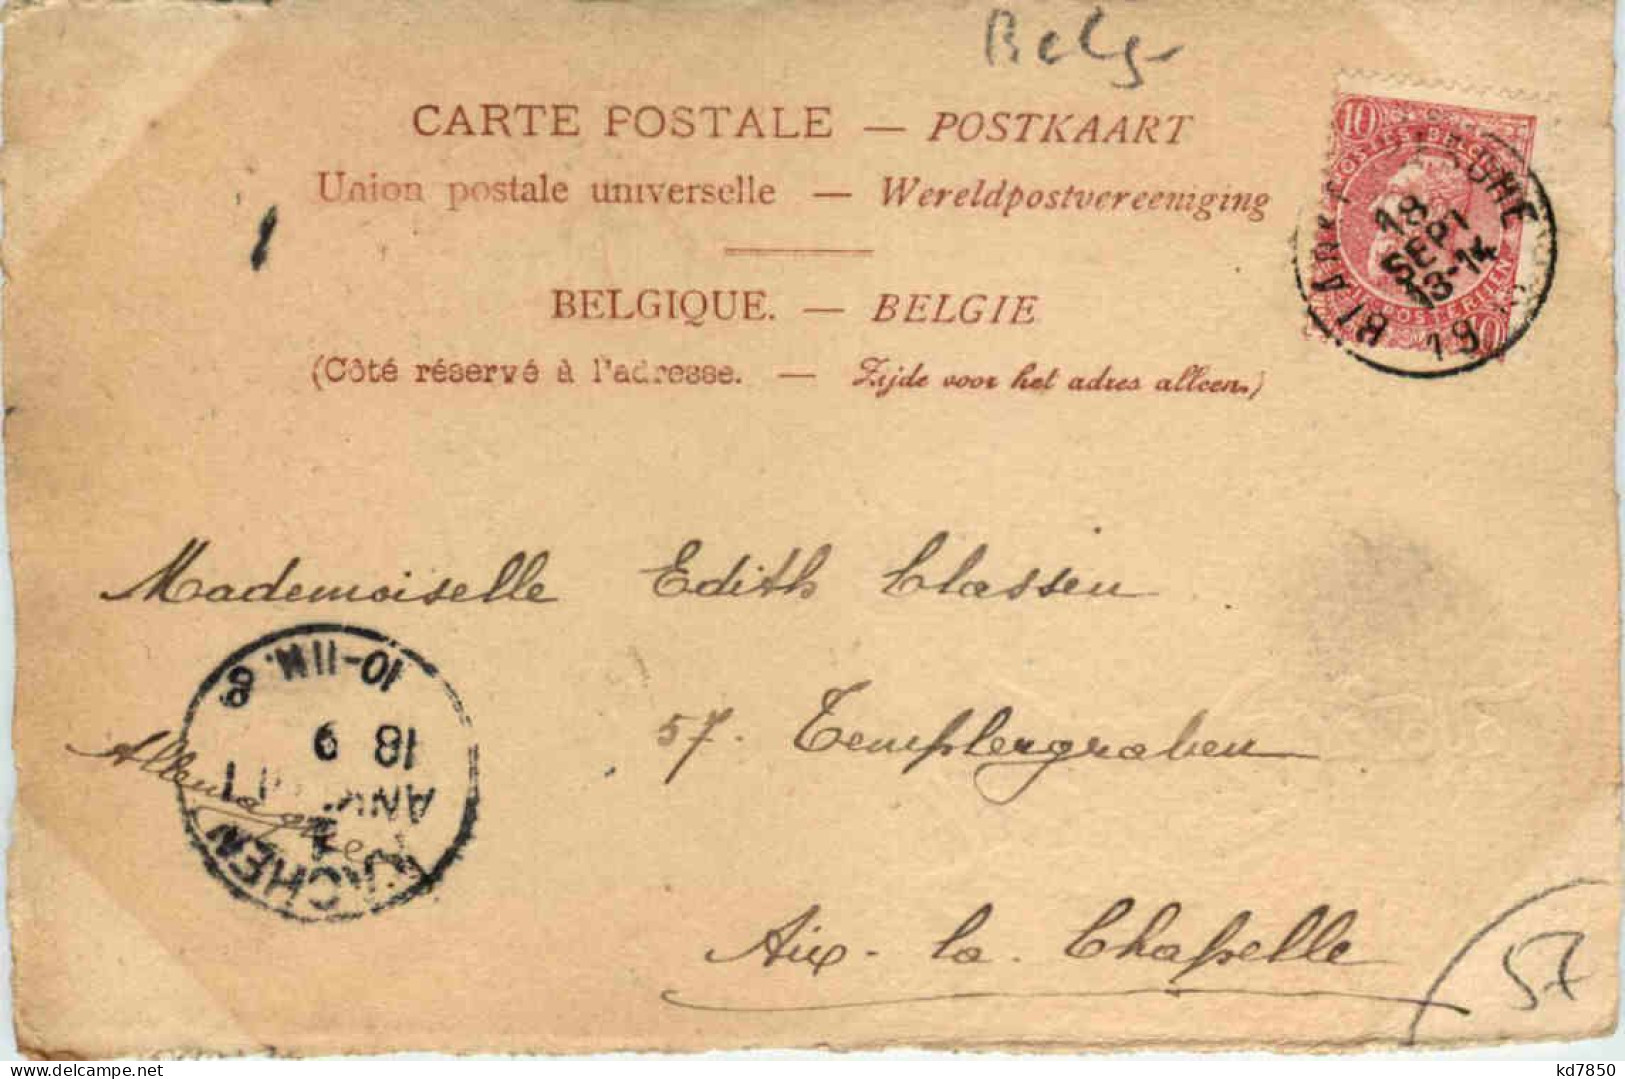 Belg
CARTE POSTALE — POSTKAART
Union postale universelle — Wereldpostvereeniging
BELGIQUE. — BELGIE
(Côté réservé à l'adresse. — Zijde voor het adres alleen.)
10
10
18
SEPT
13-14
19
Mademoiselle Edith Classen
57. Templergraben
Allemagne
Aix-la-Chapelle
10-11N.
18 9
ANK.
AACHEN
1
57
kd7850